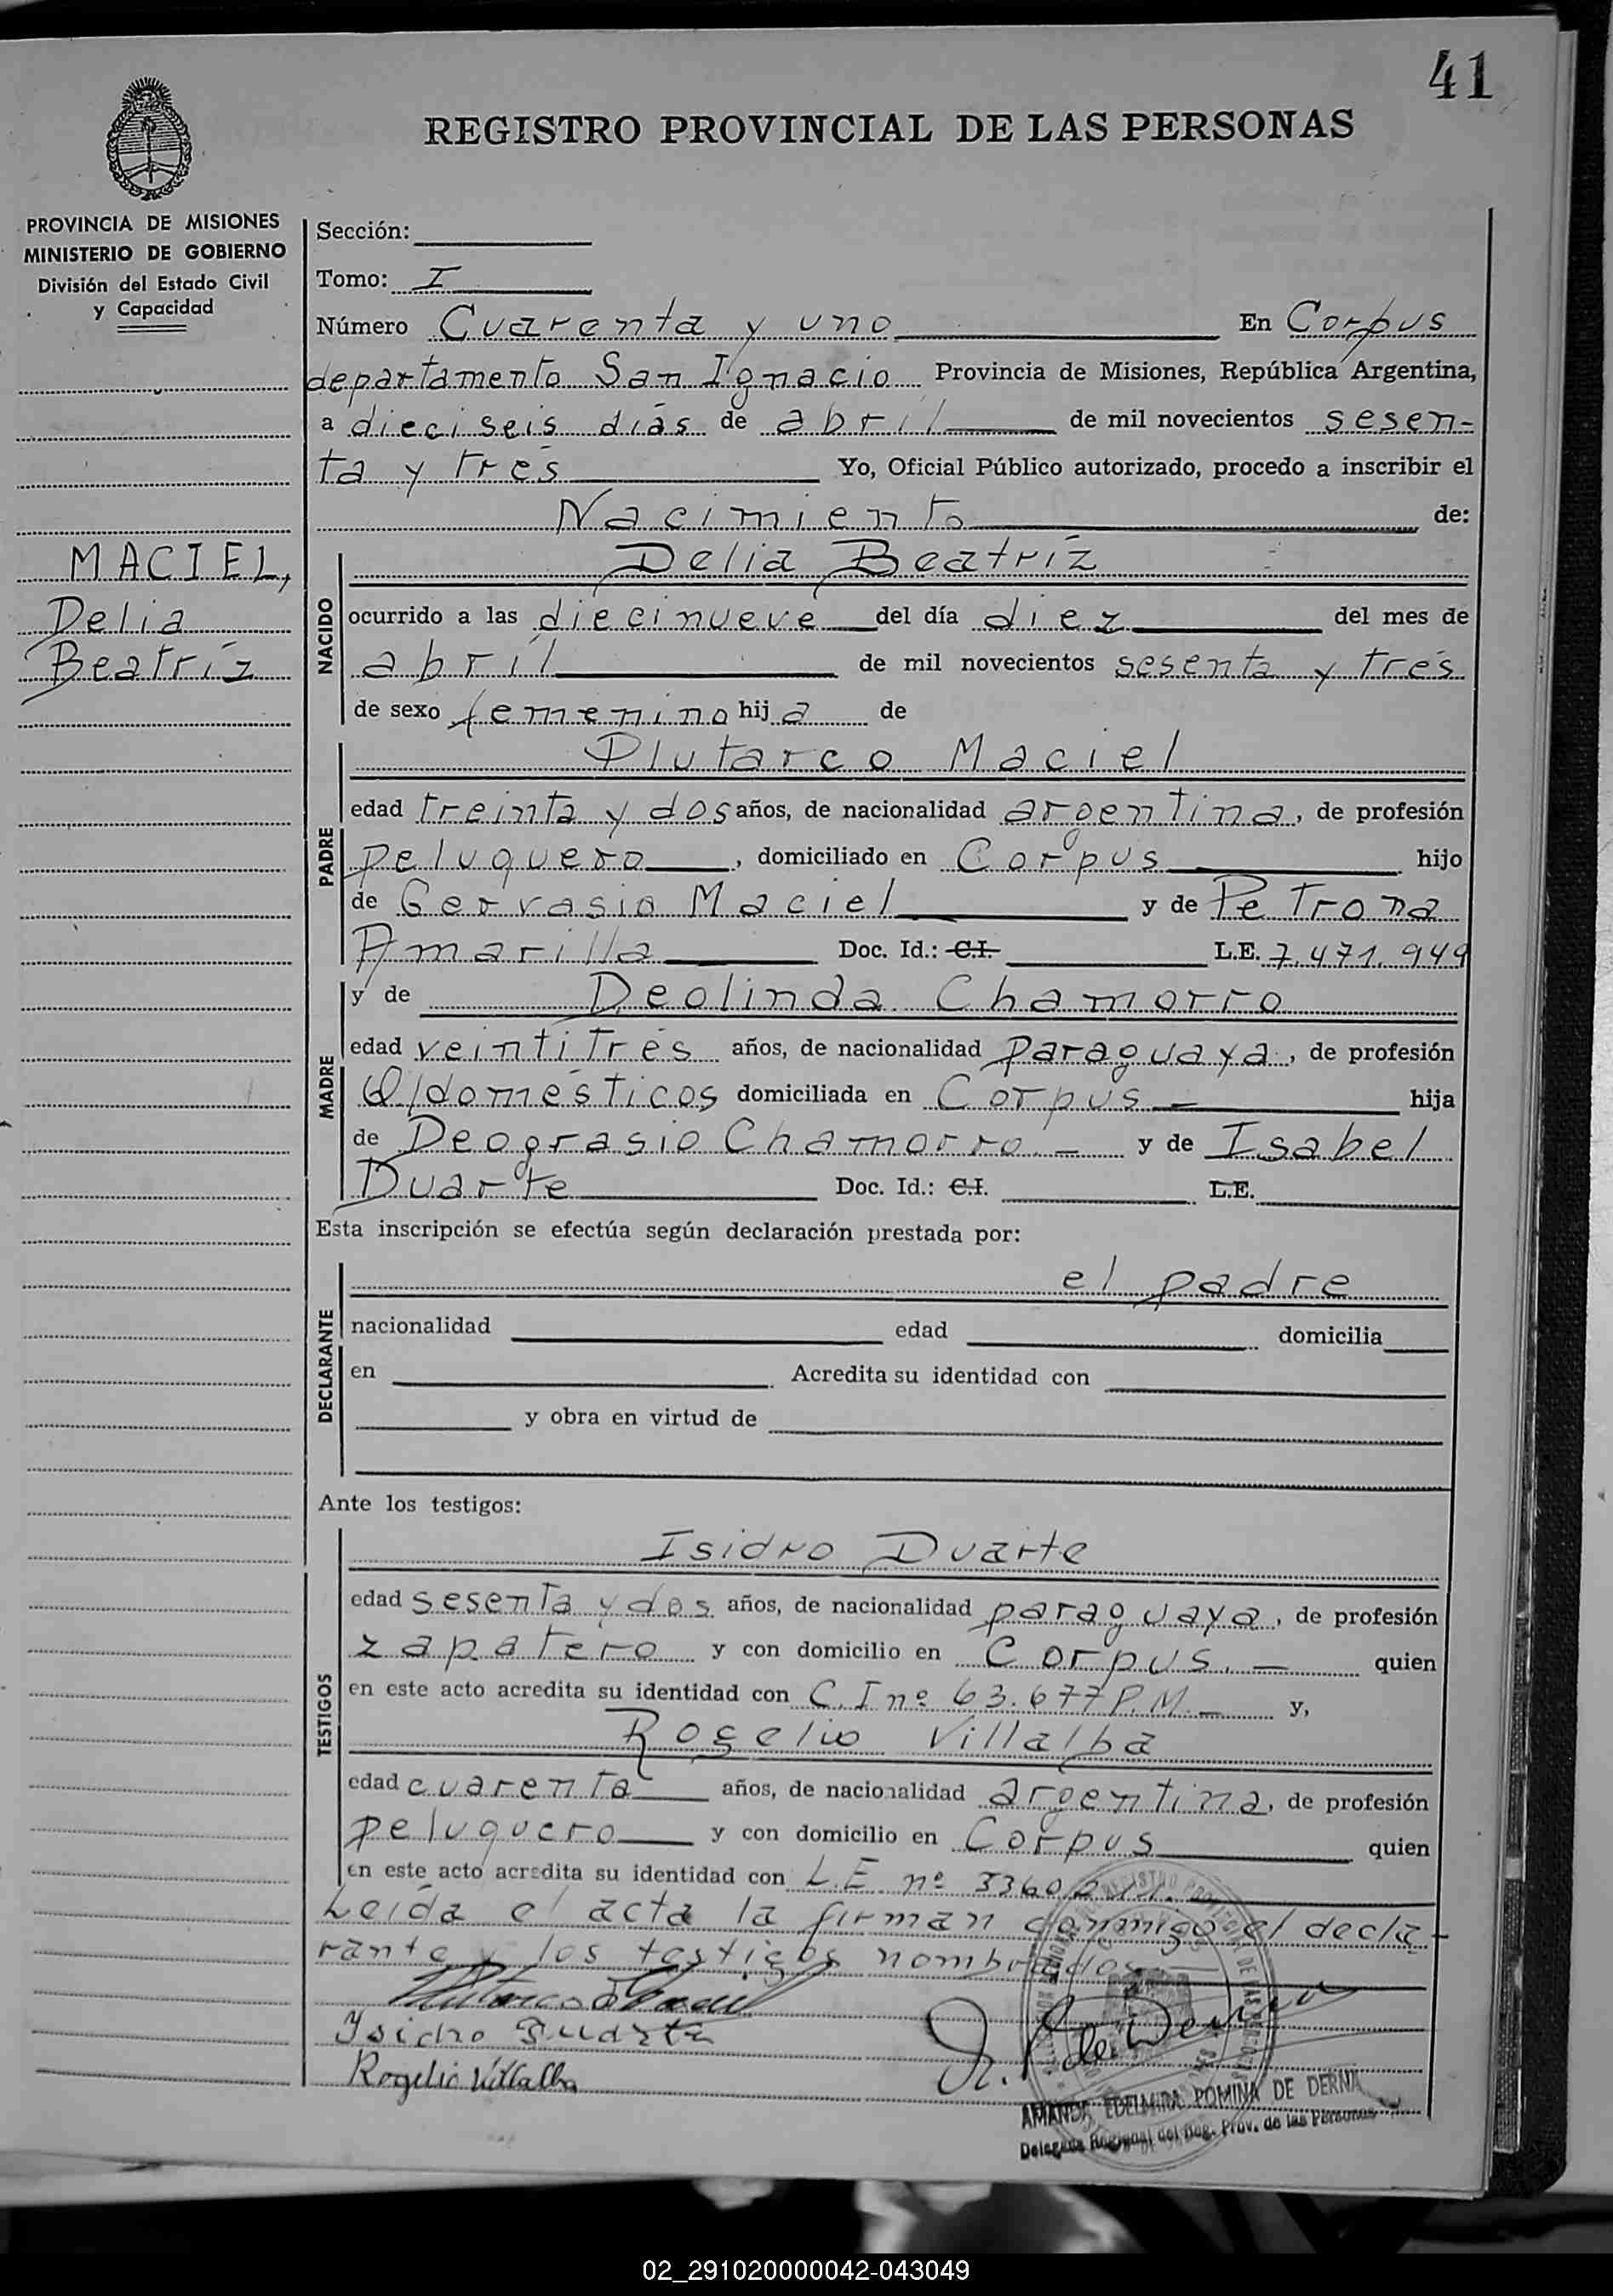 41
REGISTRO PROVINCIAL DE LAS PERSONAS
PROVINCIA DE MISIONES
MINISTERIO DE GOBIERNO
División del Estado Civil
y Capacidad
MACIEL,
Delia
Beatríz
Sección:
Tomo: I
Número Cuarenta y uno En Corpus
departamento San Ignacio Provincia de Misiones, República Argentina,
a dieciseis días de abril de mil novecientos sesen-
ta y tres Yo, Oficial Público autorizado, procedo a inscribir el
Nacimiento de:
NACIDO
Delia Beatríz
ocurrido a las diecinueve del día diez del mes de
abril de mil novecientos sesenta y tres
de sexo femenino hija de
PADRE
Plutarco Maciel
edad treinta y dos años, de nacionalidad argentina, de profesión
peluquero, domiciliado en Corpus hijo
de Gervasio Maciel y de Petrona
Amarilla Doc. Id.: C.I. L.E. 7.471.949
MADRE
y de Deolinda Chamorro
edad veintitrés años, de nacionalidad paraguaya, de profesión
Q/domésticos domiciliada en Corpus.- hija
de Deograsio Chamorro.- y de Isabel
Duarte Doc. Id.: C.I. L.E.
Esta inscripción se efectúa según declaración prestada por:
DECLARANTE
el padre
nacionalidad edad domicilia
en Acredita su identidad con
y obra en virtud de
Ante los testigos:
TESTIGOS
Isidro Duarte
edad sesenta y dos años, de nacionalidad paraguaya, de profesión
zapatero y con domicilio en Corpus.- quien
en este acto acredita su identidad con C.I nº 63.677 P.M.- y,
Rogelio Villalba
edad cuarenta años, de nacionalidad argentina, de profesión
peluquero y con domicilio en Corpus quien
en este acto acredita su identidad con L.E. nº
Leída el acta la firman conmigo el decla-
rante y los testigos nombrados
Isidro Duarte
Rogelio Villalba
AMANDA EDELMIRA POMINA DE DERNA
Delegada Regional del Reg. Prov. de las Personas
02_291020000042-043049